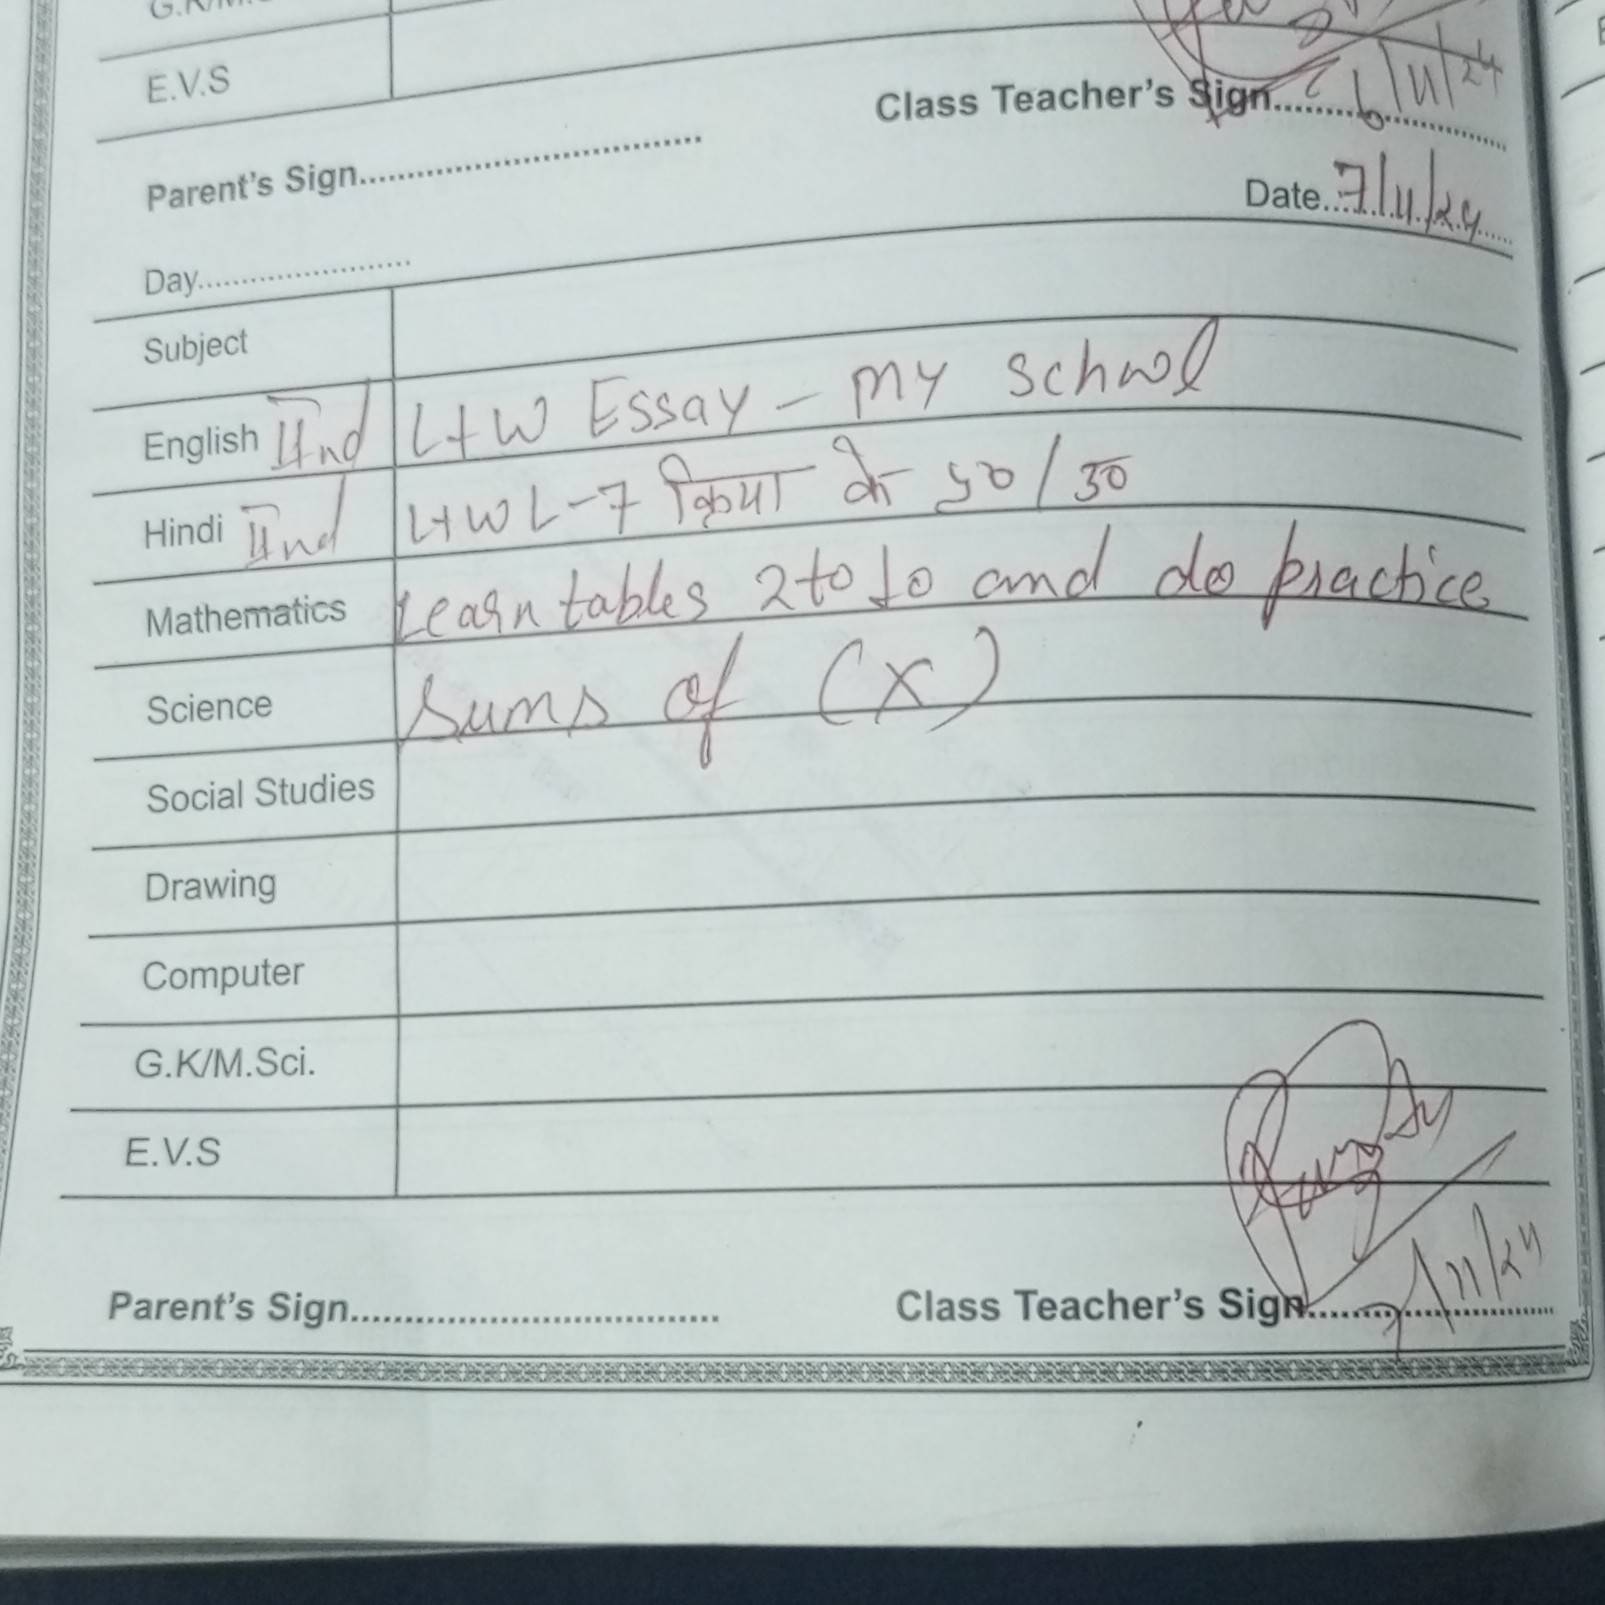 E.V.S
Class Teacher's Sign............ 6/11/24
Parent's Sign...................................
Date..7/11/24......
Day.......................
Subject
English IInd L+W Essay - my school
Hindi IInd L+W L-7 क्रिया के प्र० / उ०
Mathematics Learn tables 2 to 10 and do practice
Science sums of (x)
Social Studies
Drawing
Computer
G.K/M.Sci.
E.V.S
Parent's Sign...................................
Class Teacher's Sign............ 7/11/24